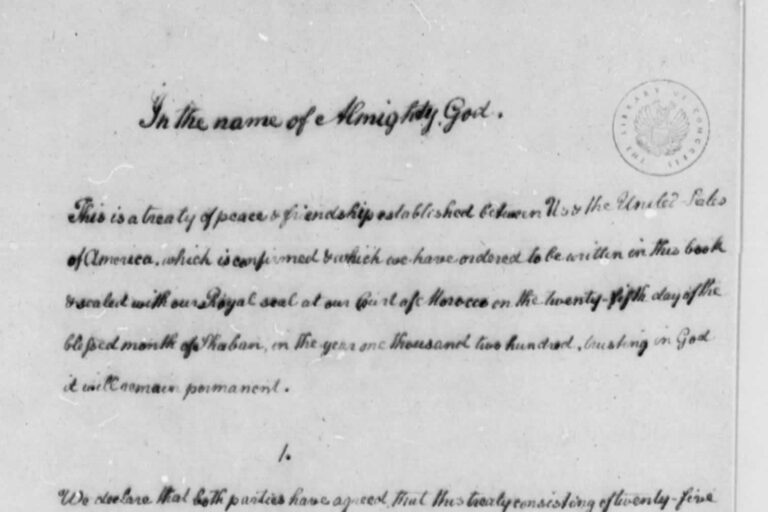 In the name of Almighty God.
THE LIBRARY OF CONGRESS
This is a treaty of peace & friendship established between Us & the United States
of America, which is confirmed & which we have ordered to be written in this book
& sealed with our Royal seal at our Court of Morocco on the twenty-fifth day of the
blessed month of Shaban, in the year one thousand two hundred, trusting in God
it will remain permanent.
1.
We declare that both parties have agreed that this treaty consisting of twenty-five